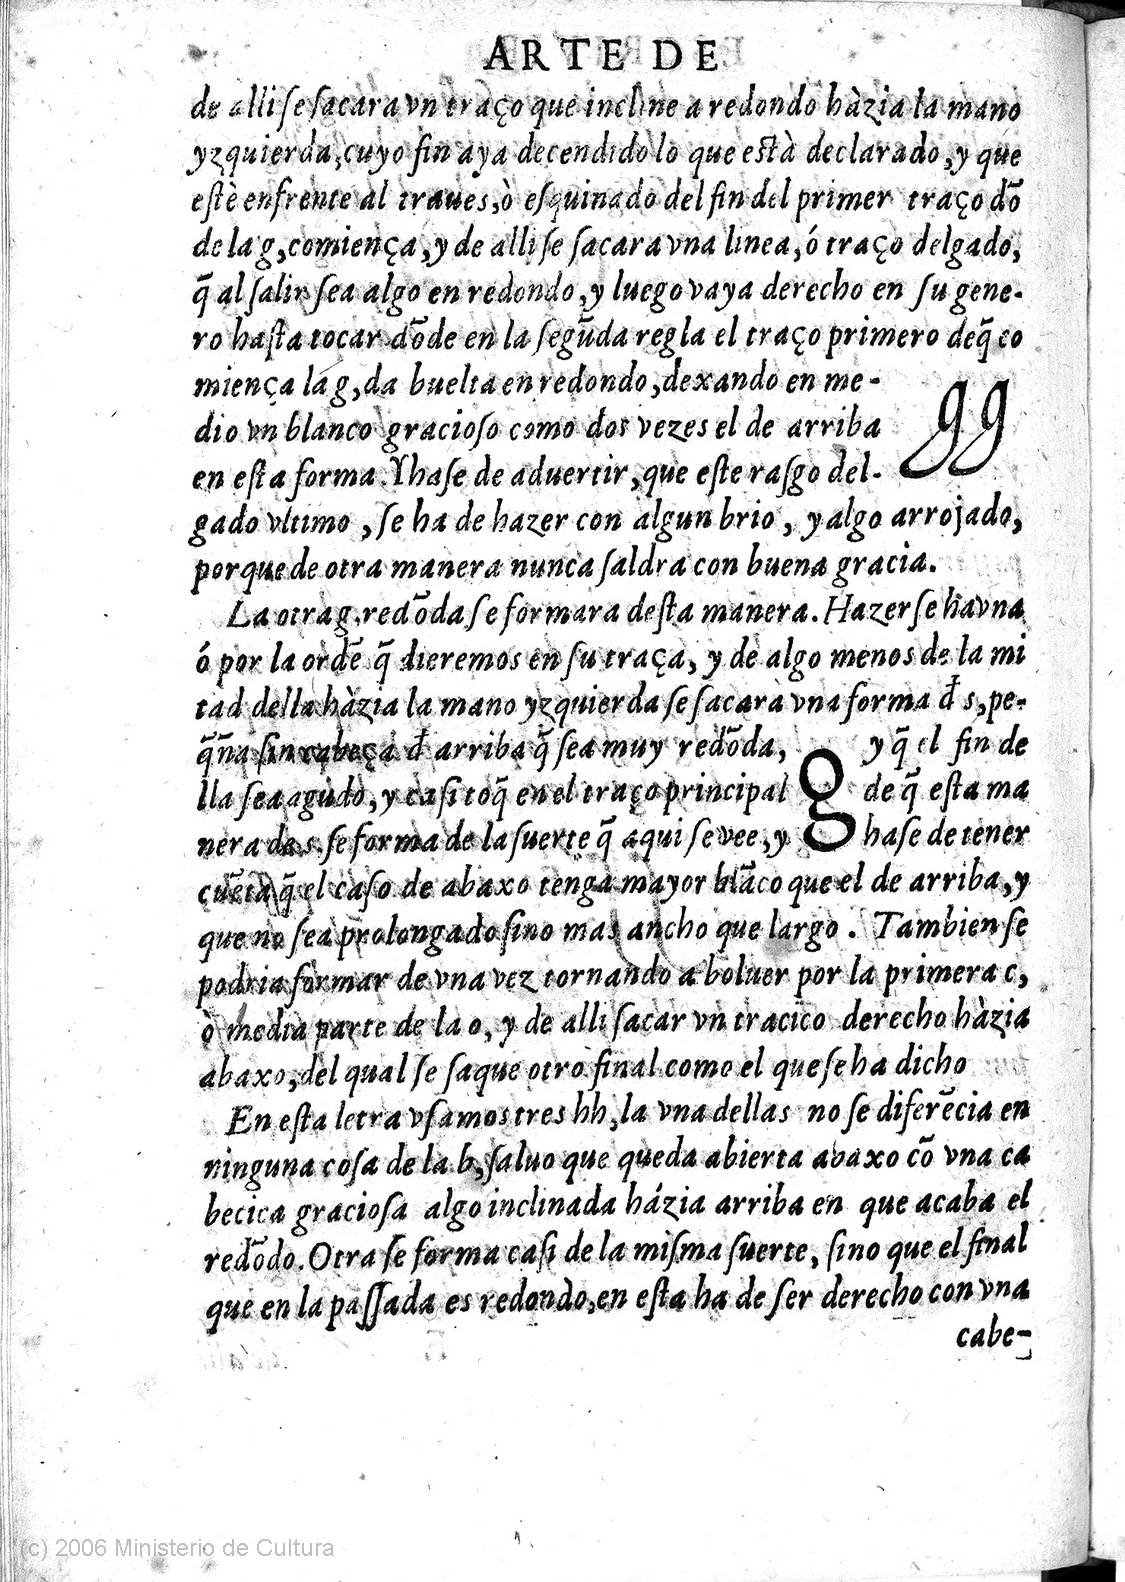 ARTE DE
de alli se sacara vn traço que incline a redondo hàzia la mano
yzquierda,cuyo fin aya decendido lo que està declarado,y que
estè enfrente al traues,ò esquinado del fin del primer traço dõ
de la g,comiença,y de alli se sacara vna linea,ó traço delgado,
q̃ al salir sea algo en redondo,y luego vaya derecho en su gene-
ro hasta tocar dõde en la segũda regla el traço primero deq̃ co
miença la g,da buelta en redondo,dexando en me-
dio vn blanco gracioso como dos vezes el de arriba
en esta forma.Y hase de aduertir,que este rasgo del-
gg
gado vltimo , se ha de hazer con algun brio , y algo arrojado,
porque de otra manera nunca saldra con buena gracia.
La otra g.redõda se formara desta manera. Hazerse ha vna
ó por la ordẽ q̃ dieremos en su traça, y de algo menos de la mi
tad della hàzia la mano yzquierda se sacarà vna forma đ s,pe-
q̃ña sin cabeça đ arriba q̃ sea muy redõda, y q̃ el fin de
lla sea agudo,y casi toq̃ en el traço principal g de q̃ esta ma
nera de s.se forma de la suerte q̃ aqui se vee,y hase de tener
cuẽta q̃ el caso de abaxo tenga mayor blãco que el de arriba,y
que no sea prolongado sino mas ancho que largo . Tambien se
podria formar de vna vez tornando a boluer por la primera c,
ò media parte de la o, y de alli sacar vn tracico derecho hàzia
abaxo,del qual se saque otro final como el que se ha dicho
En esta letra vsamos tres hh,la vna dellas no se diferẽcia en
ninguna cosa de la b,saluo que queda abierta abaxo cõ vna ca
becica graciosa algo inclinada házia arriba en que acaba el
redõdo.Otra se forma casi de la misma suerte, sino que el final
que en la passada es redondo,en esta ha de ser derecho con vna
cabe-
(c) 2006 Ministerio de Cultura